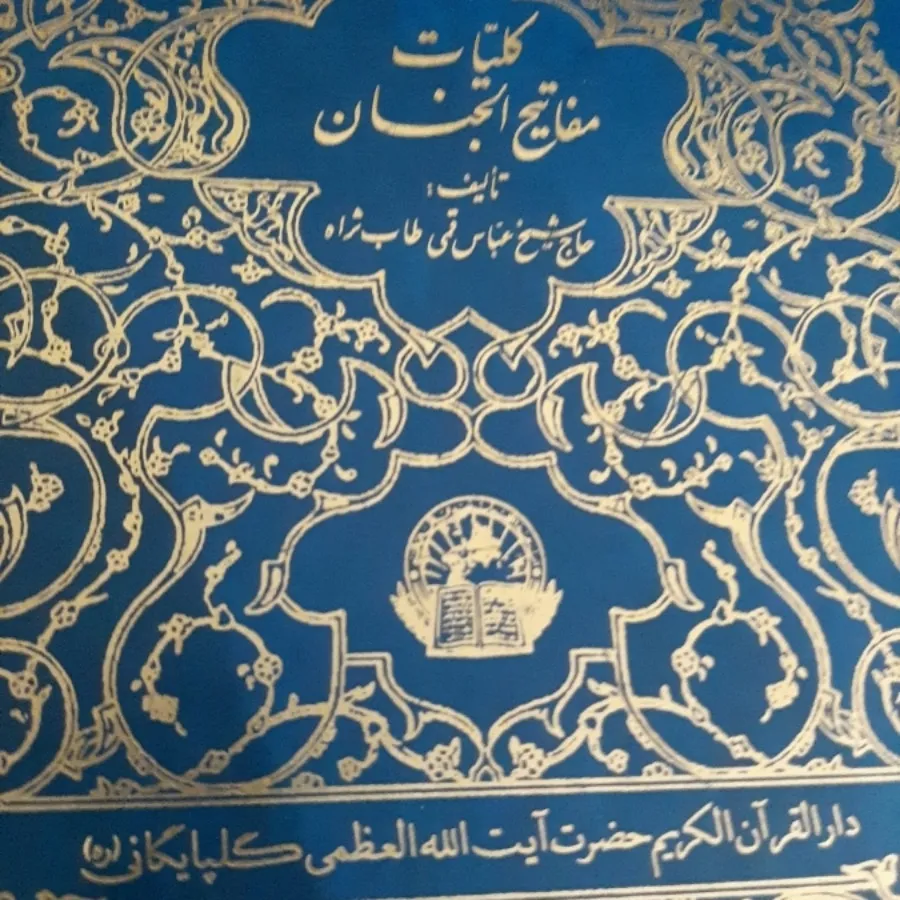 کلیّات
مفاتیح الجنان
تألیف:
حاج شیخ عبّاس قمی طاب ثراه
دارالقرآن الکریم حضرت آیت الله العظمی گلپایگانی (ره)